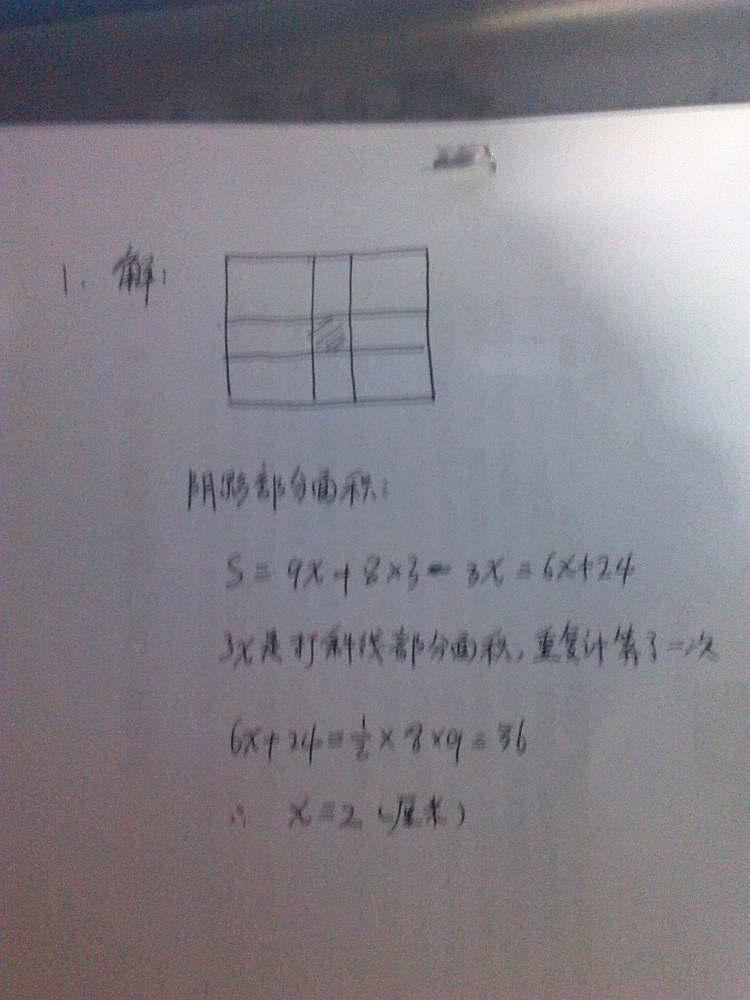 1. 解:
阴影部分面积:
S = 9x + 8×3 - 3x = 6x+24
3x是打斜线部分面积,重复计算了一次
6x+24 = 1/2 × 8 × 9 = 36
∴ x = 2 (厘米)